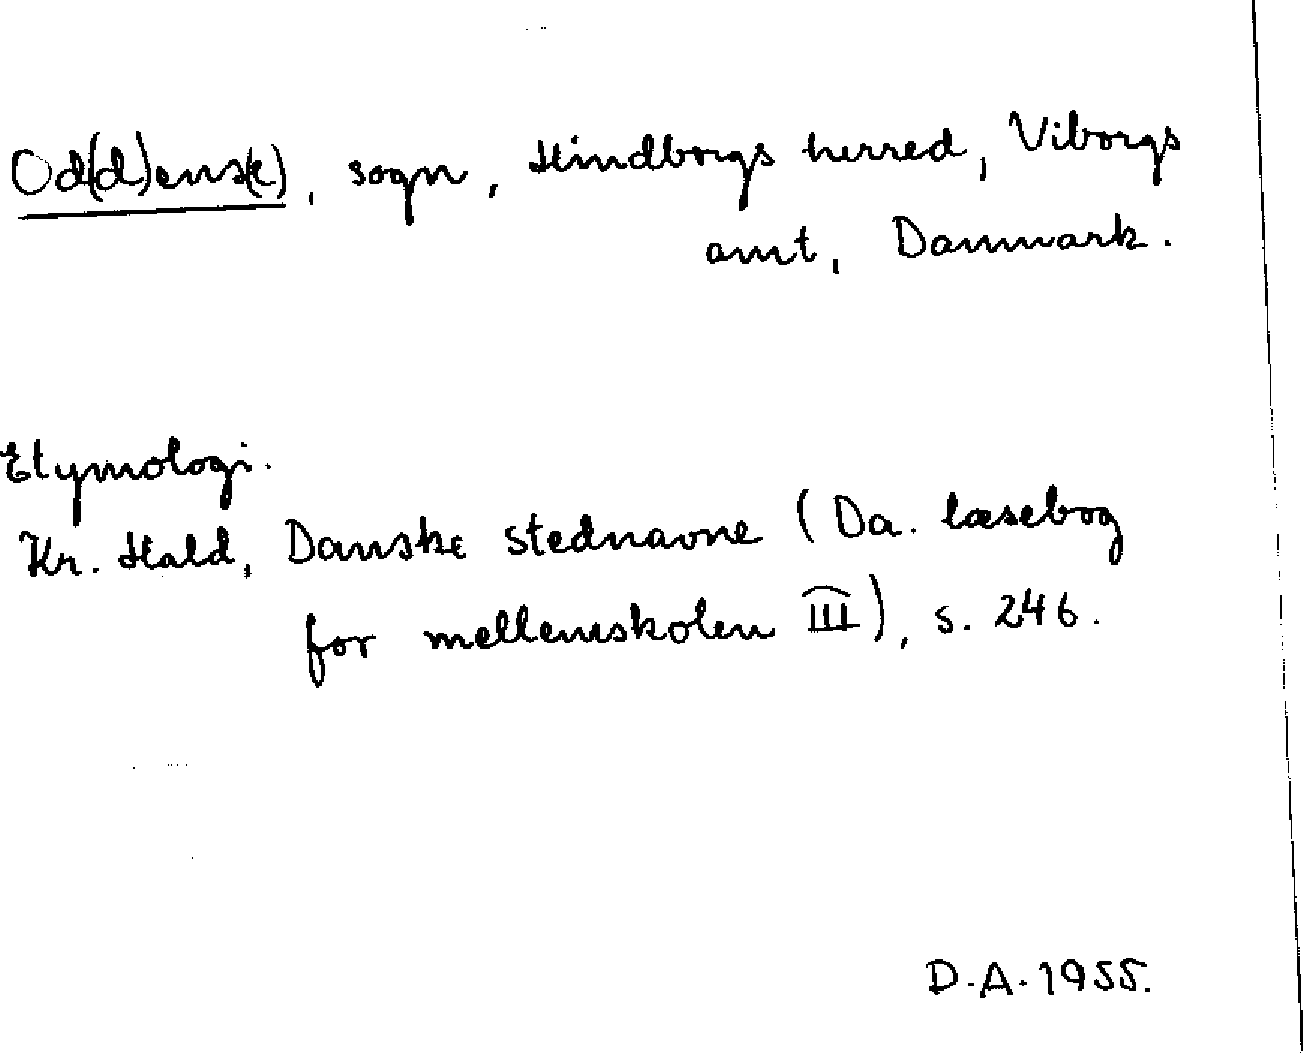 Od(d)ens(e), sogn, Hindborgs herred, Viborgs
amt, Danmark.
Etymologi.
Kr. Hald, Danske stednavne (Da. læsebog
for mellemskolen III), s. 246.
D.A. 1955.